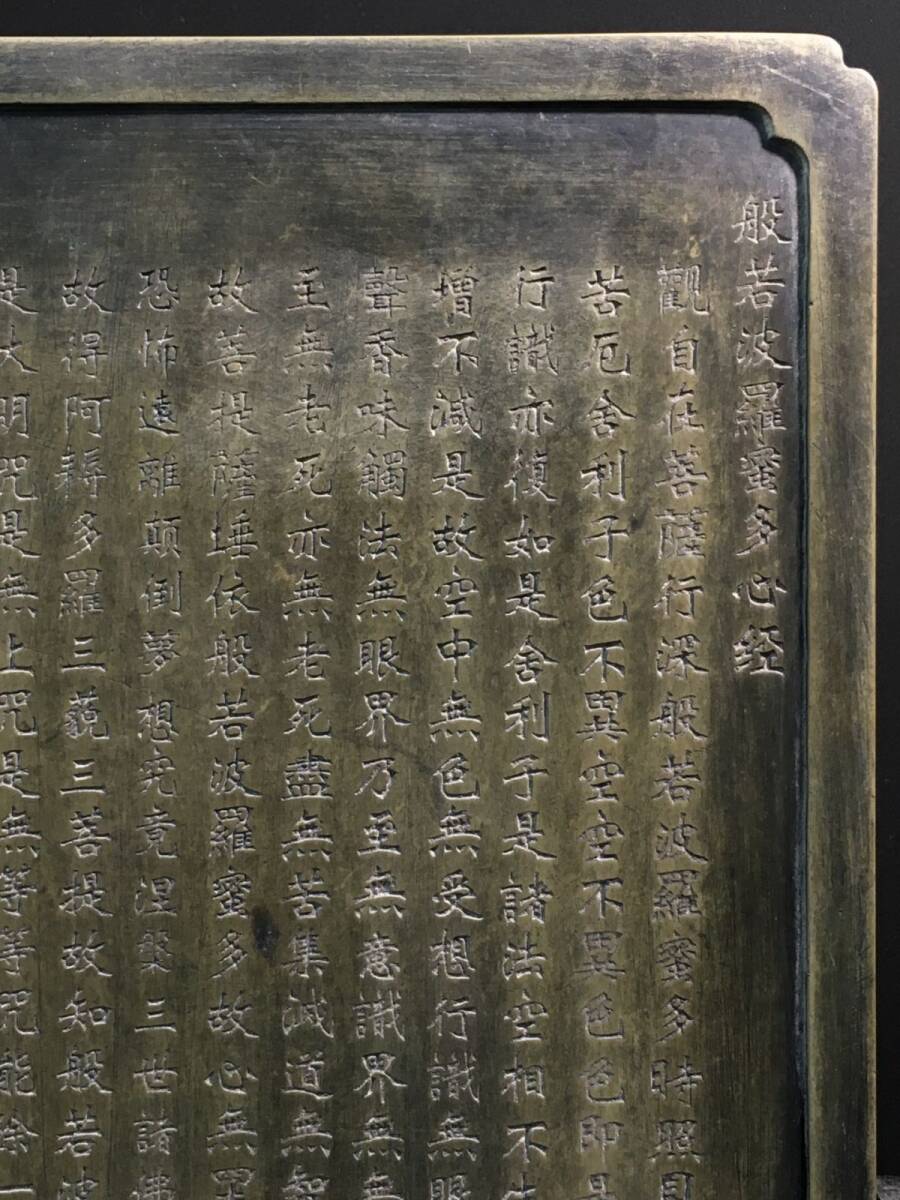 般若波羅蜜多心经
觀自在菩薩行深般若波羅蜜多時照見
苦厄舍利子色不異空空不異色色即是
行識亦復如是舍利子是諸法空相不生
增不減是故空中無色無受想行識無眼
聲香味觸法無眼界乃至無意識界無無
至無老死亦無老死盡無苦集滅道無智
故菩提薩埵依般若波羅蜜多故心無罣
恐怖遠離顛倒夢想究竟涅槃三世諸佛
故得阿耨多羅三藐三菩提故知般若波
是大明咒是無上咒是無等等咒能除一